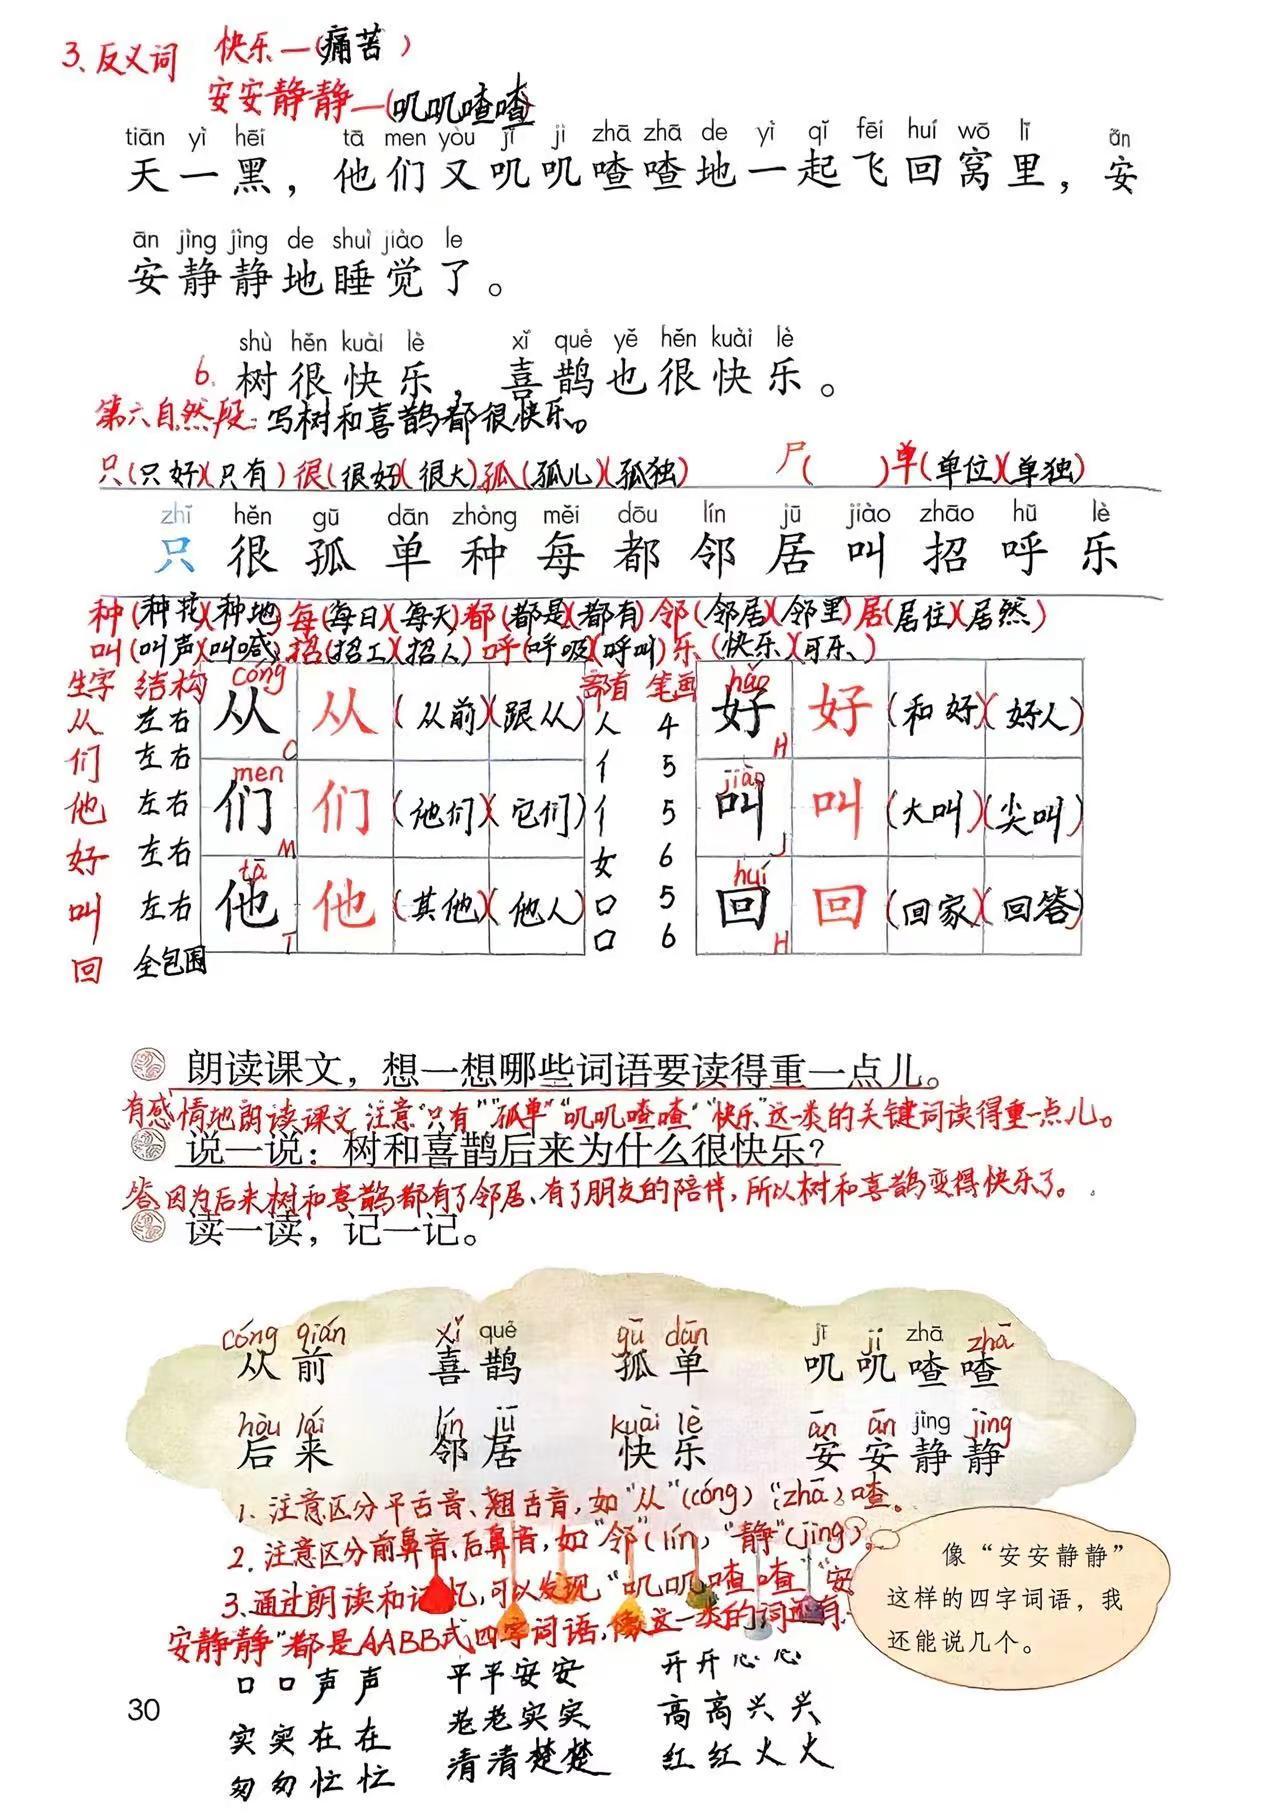 3、反义词 快乐—(痛苦)
安安静静—(叽叽喳喳)
tiān yì hēi tā men yòu jī ji zhā zhā de yì qǐ fēi huí wō lǐ ān
天一黑，他们又叽叽喳喳地一起飞回窝里，安
ān jìng jìng de shuì jiào le
安静静地睡觉了。
shù hěn kuài lè xǐ què yě hěn kuài lè
6. 树很快乐，喜鹊也很快乐。
第六自然段：写树和喜鹊都很快乐。
只(只好)(只有)很(很好)(很大)孤(孤儿)(孤独) 尸( )单(单位)(单独)
zhī hěn gū dān zhòng měi dōu lín jū jiào zhāo hū lè
只很孤单种每都邻居叫招呼乐
种(种花)(种地)每(每日)(每天)都(都是)(都有)邻(邻居)(邻里)居(居住)(居然)
叫(叫声)(叫喊)招(招工)(招人)呼(呼吸)(呼叫)乐(快乐)(可乐)
生字 结构 cóng 部首 笔画 hǎo
从 左右 从 从 (从前)(跟从) 人 4 好 好 (和好)(好人)
C H
们 左右 men 亻 5 jiào
他 左右 们 们 (他们)(它们) 亻 5 叫 叫 (大叫)(尖叫)
M J
好 左右 tā 女 6 huí
叫 左右 他 他 (其他)(他人) 口 5 回 回 (回家)(回答)
T H
回 全包围 口 6
朗读课文，想一想哪些词语要读得重一点儿。
有感情地朗读课文 注意“只有”“孤单”“叽叽喳喳”“快乐”这一类的关键词读得重一点儿。
说一说：树和喜鹊后来为什么很快乐？
答：因为后来树和喜鹊都有了邻居、有了朋友的陪伴，所以树和喜鹊变得快乐了。
读一读，记一记。
cóng qián xǐ què gū dān jī ji zhā zhā
从前 喜鹊 孤单 叽叽喳喳
hòu lái lín jū kuài lè ān ān jìng jìng
后来 邻居 快乐 安安静静
1. 注意区分平舌音、翘舌音，如“从”(cóng)“(zhā)喳。
2. 注意区分前鼻音、后鼻音，如“邻”(lín)“静”(jìng)。
3. 通过朗读和记忆，可以发现“叽叽喳喳”“安
安静静”都是AABB式四字词语，像这一类的词还有
像“安安静静”
这样的四字词语，我
还能说几个。
口口声声 平平安安 开开心心
30
实实在在 老老实实 高高兴兴
匆匆忙忙 清清楚楚 红红火火